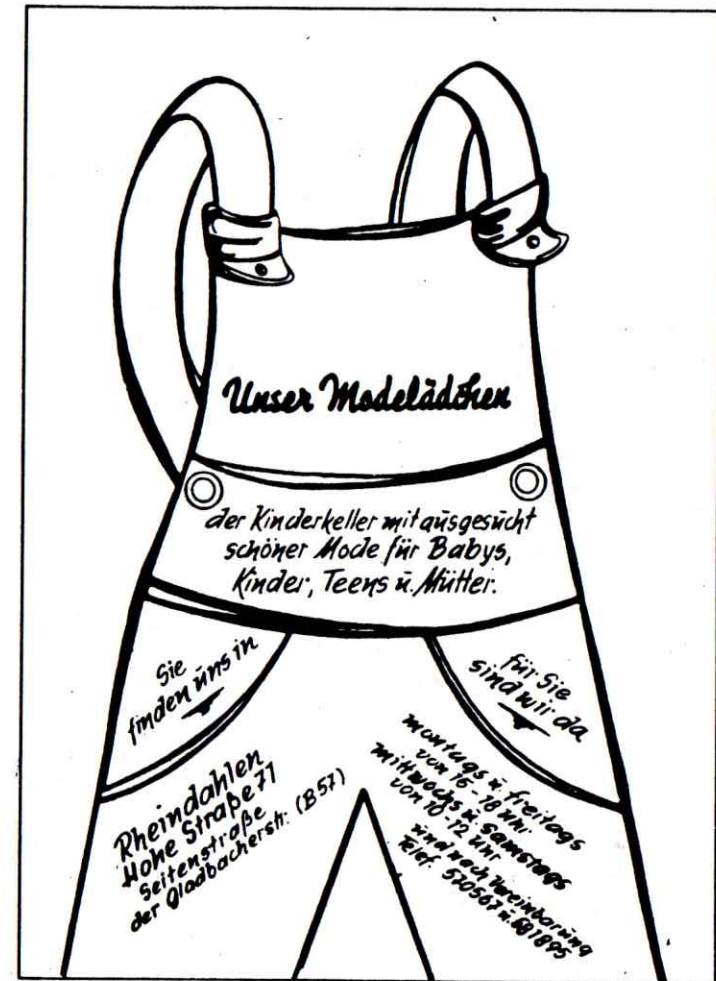 Unser Modelädchen
der Kinderkeller mit ausgesucht
schöner Mode für Babys,
Kinder, Teens u. Mütter.
Sie
finden uns in
für Sie
sind wir da
Rheindahlen
Hohe Straße 71
Seitenstraße
der Gladbacherstr. (B57)
montags u. freitags
von 16-18 Uhr
mittwochs u. samstags
von 10-12 Uhr
und nach Vereinbarung
Telef. 570567 u. 681895